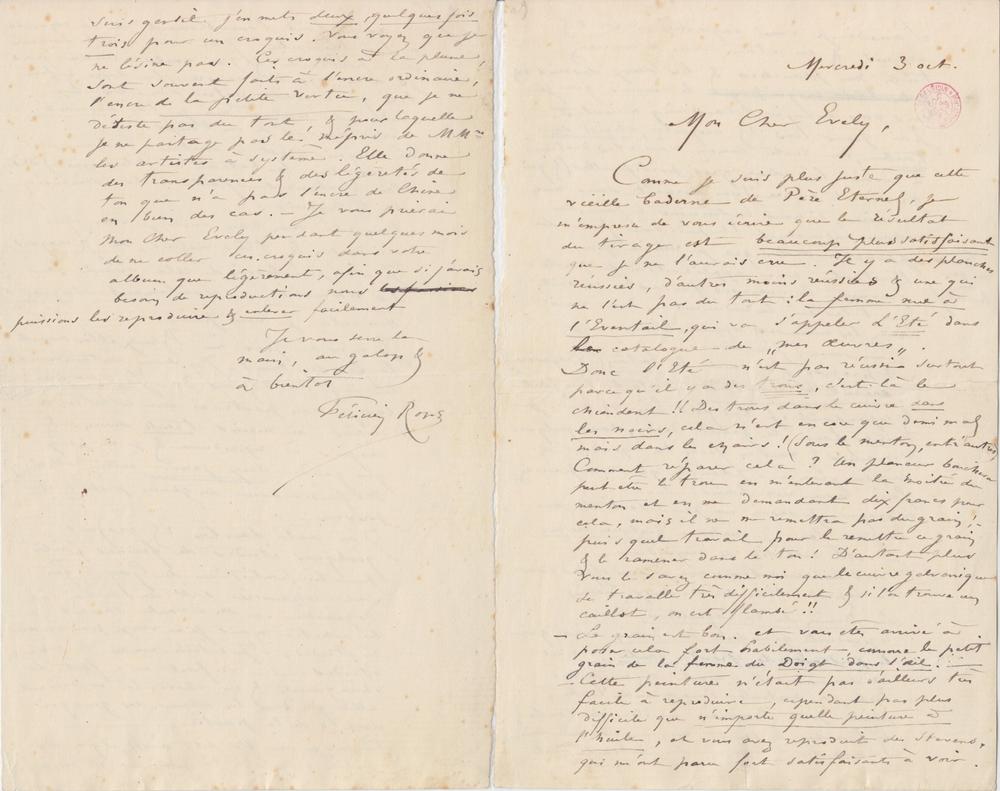 suis gentil j'en mets deux, quelques fois
trois pour un croquis. Vous voyez que je
ne lésine pas. Ces croquis à la plume,
sont souvent faits à l'encre ordinaire,
l'encre de la petite vertu, que je ne
déteste pas du tout, & pour laquelle
je ne partage pas les mépris de MM.
les artistes à système. Elle donne
des transparences & des légeretés de
ton que n'a pas l'encre de Chine
en bien des cas. – Je vous prierai
mon cher Evely pendant quelques mois
de ne coller ces croquis dans votre
album que légèrement, afin que si j'avais
besoin de reproductions nous
puissions les reproduire & enlever facilement
Je vous serre la
main, au galop &
à bientôt
Félicien Rops
Mercredi 3 oct.
Mon Cher Evely,
Comme je suis plus juste que cette
vieille baderne de Père Eternel, je
m'empresse de vous écrire que le résultat
du tirage est beaucoup plus satisfaisant
que je ne l'aurais cru. Il y a des planches
réussies, d'autres moins réussies & une qui
ne l'est pas du tout : la femme nue à
l'Eventail, qui va s'appeler L'Eté dans
catalogue de „mes Œuvres".
Donc l'Eté n'est pas réussie surtout
parce qu'il y a des trous, c'est là le
chiendent !! Des trous dans le cuivre dans
les noirs, cela n'est encore que demi mal
mais dans les chairs ! (sous le menton, entr'autres)
Comment réparer cela ? Un planeur bouchera
peut être le trou en m'enlevant la moitié du
menton et en me demandant dix francs pour
cela, mais il ne me remettra pas du grain !–
puis quel travail pour le remettre ce grain
& le ramener dans le ton ! D'autant plus
vous le savez comme moi que le cuivre galvanique
se travaille très difficilement & si l'on trouve un
caillot, on est flambé !!
– Le grain est bon. et vous êtes arrivé à
poser cela fort habilement, comme le petit
grain de la femme du Doigt dans l'œil. –
– Cette peinture n'était pas d'ailleurs très
facile à reproduire, cependant pas plus
difficile que n'importe quelle peinture à
l'huile, et vous avez reproduit des Stevens,
qui m'ont paru fort satisfaisants à voir.